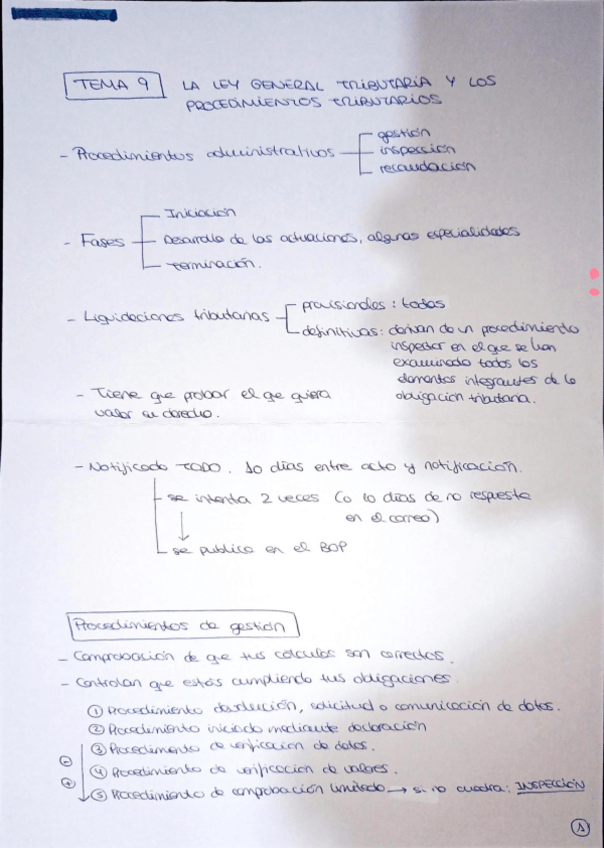 TEMA 9 LA LEY GENERAL TRIBUTARIA Y LOS
PROCEDIMIENTOS TRIBUTARIOS
- Procedimientos administrativos
gestión
inspección
recaudación
- Fases
Iniciación
Desarrollo de las actuaciones, algunas especialidades
terminación.
- Liquidaciones tributarias
provisionales: todas
definitivas: derivan de un procedimiento
inspector en el que se han
examinado todos los
elementos integrantes de la
obligación tributaria.
- Tiene que probar el que quiera
valer su derecho.
- Notificado TODO. 10 días entre acto y notificación.
se intenta 2 veces (o 10 días de no respuesta
en el correo)
↓
se publica en el BOP
Procedimientos de gestión
- Comprobación de que tus cálculos son correctos.
- Controlan que estás cumpliendo tus obligaciones.
① Procedimiento devolución, solicitud o comunicación de datos.
② Procedimiento iniciado mediante declaración
③ Procedimiento de verificación de datos.
⊖
④ Procedimiento de verificación de valores.
⊕
⑤ Procedimiento de comprobación limitada → si no cuadra: INSPECCIÓN
①